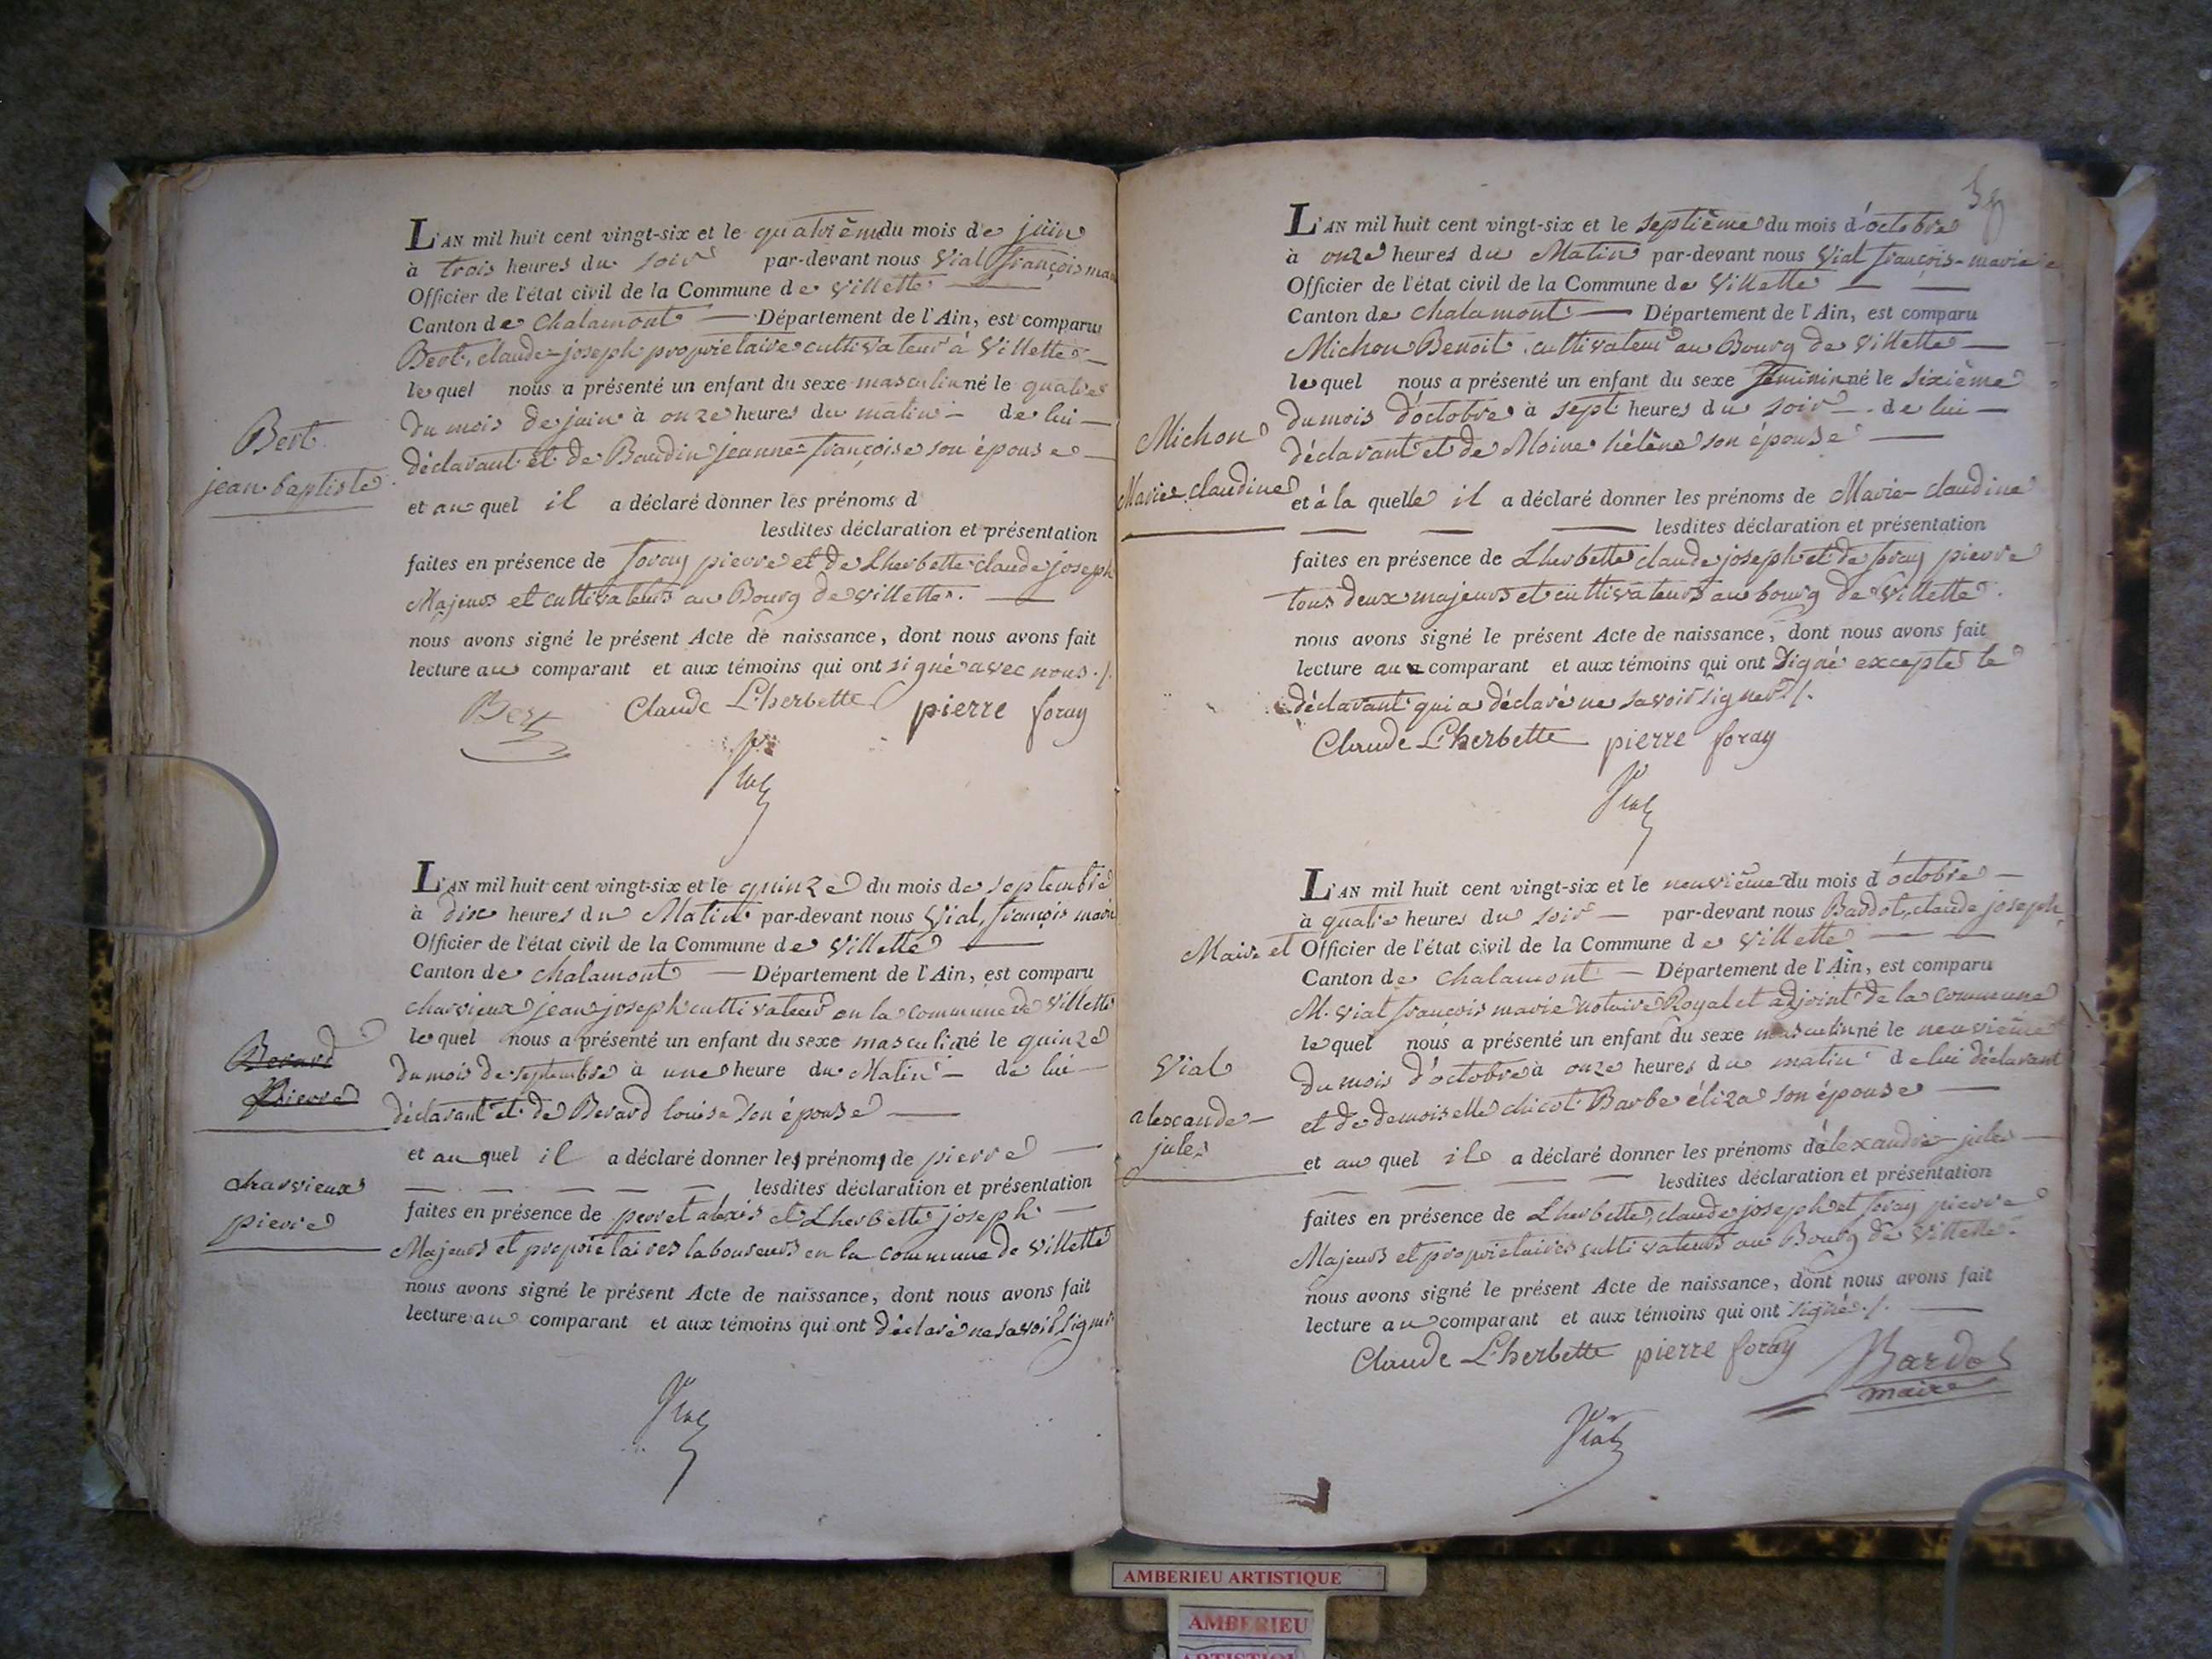 L'AN mil huit cent vingt-six et le quatrième du mois de juin
à trois heures du soir par-devant nous Vial françois marie
Officier de l'état civil de la Commune de Villette
Canton de Chalamont — Département de l'Ain, est comparu
Bert, claude-joseph propriétaire cultivateur à Villette
lequel nous a présenté un enfant du sexe masculin né le quatre
du mois de juin à onze heures du matin — de lui —
déclarant et de Baudin jeanne-françoise son épouse
Bert
jean baptiste
et au quel il a déclaré donner les prénoms d
lesdites déclaration et présentation
faites en présence de foray pierre et de Lherbette claude joseph
Majeurs et cultivateurs au Bourg de Villette.
nous avons signé le présent Acte de naissance, dont nous avons fait
lecture au comparant et aux témoins qui ont signé avec nous ./.
Bert Claude L'herbette pierre foray
Vial
L'AN mil huit cent vingt-six et le quinze du mois de septembre
à dix heures du Matin par-devant nous Vial, françois marie
Officier de l'état civil de la Commune de Villette
Canton de chalamont — Département de l'Ain, est comparu
charvieux jean joseph cultivateur en la commune de Villette
lequel nous a présenté un enfant du sexe masculin né le quinze
du mois de septembre à une heure du Matin — de lui —
déclarant et de Berard louise son épouse —
Berard
Pierre
charvieux
pierre
et au quel il a déclaré donner les prénoms de pierre —
lesdites déclaration et présentation
faites en présence de perret alexis et Lherbette joseph —
Majeurs et propriétaires laboureurs en la commune de Villette
nous avons signé le présent Acte de naissance, dont nous avons fait
lecture au comparant et aux témoins qui ont déclaré ne savoir signer
Vial
L'AN mil huit cent vingt-six et le septième du mois d'octobre
à onze heures du Matin par-devant nous Vial françois-marie
Officier de l'état civil de la Commune de Villette —
Canton de chalamont — Département de l'Ain, est comparu
Michon Benoit cultivateur au Bourg de Villette —
lequel nous a présenté un enfant du sexe féminin né le sixième
du mois d'octobre à sept heures du soir — de lui —
déclarant et de Moine hélène son épouse —
Michon
Marie, claudine
et à la quelle il a déclaré donner les prénoms de Marie-claudine
lesdites déclaration et présentation
faites en présence de Lherbette claude joseph et de foray pierre
tous deux majeurs et cultivateurs au bourg de Villette.
nous avons signé le présent Acte de naissance, dont nous avons fait
lecture au comparant et aux témoins qui ont Signé excepté le
déclarant qui a déclaré ne savoir signer ./.
Claude L'herbette pierre foray
Vial
L'AN mil huit cent vingt-six et le neuvième du mois d'octobre —
à quatre heures du soir — par-devant nous Bardot, claude joseph
Maire et Officier de l'état civil de la Commune de Villette
Canton de chalamont — Département de l'Ain, est comparu
M. Vial françois marie notaire Royal et adjoint de la commune
lequel nous a présenté un enfant du sexe masculin né le neuvième
du mois d'octobre à onze heures du matin de lui déclarant
et de demoiselle chicot Barbe éliza son épouse —
Vial
alexandre-
jules
et au quel il a déclaré donner les prénoms d'alexandre-jules —
lesdites déclaration et présentation
faites en présence de Lherbette, claude joseph et foray pierre
Majeurs et propriétaires cultivateurs au Bourg de Villette.
nous avons signé le présent Acte de naissance, dont nous avons fait
lecture au comparant et aux témoins qui ont signé ./.
Claude L'herbette pierre foray Bardot
maire
Vial
AMBERIEU ARTISTIQUE
AMBERIEU
ARTISTIQUE